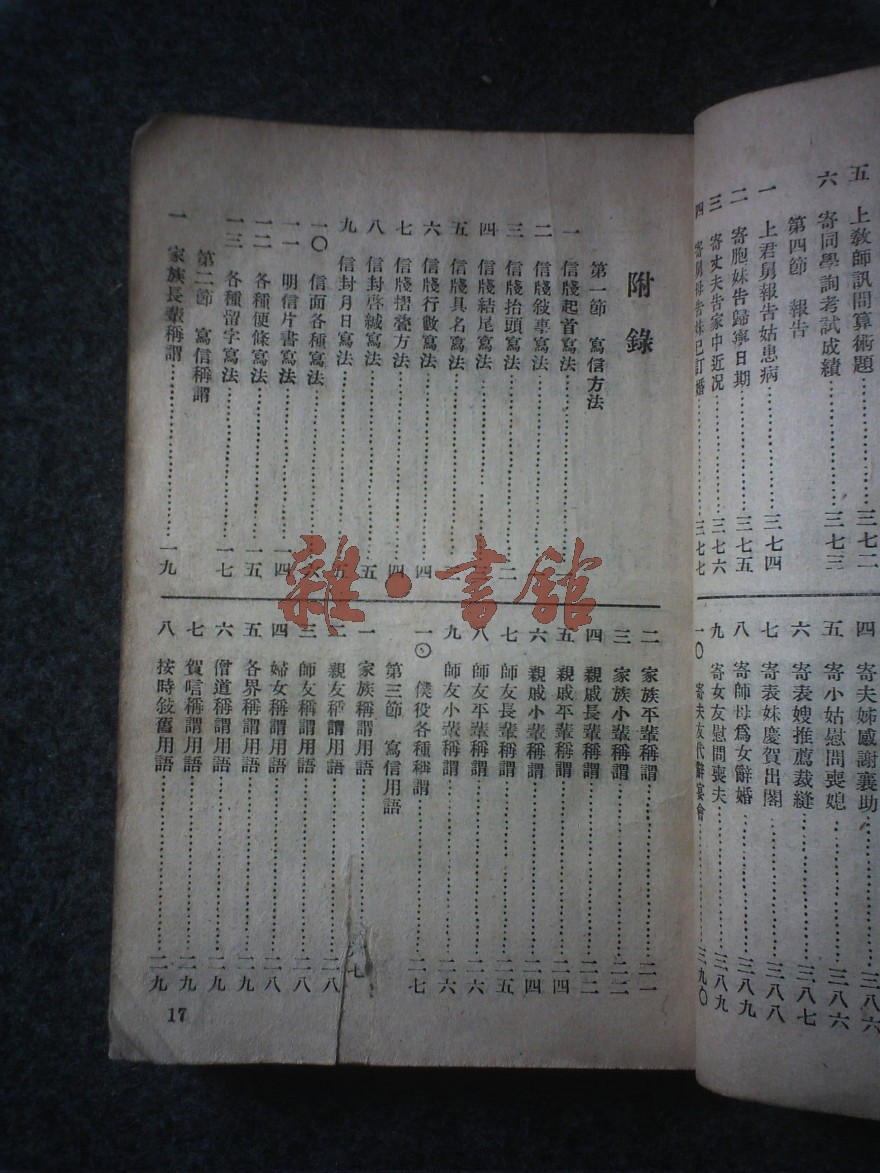 五　上教師訊問算術題……三七二
六　寄同學詢考試成績……三七三
第四節　報告
一　上君舅報告姑患病……三七四
二　寄胞妹告歸寧日期……三七五
三　寄丈夫告家中近況……三七六
四　寄舅母告妹已訂婚……三七七
四　寄夫姊感謝襄助……三八六
五　寄小姑慰問喪媳……三八六
六　寄表嫂推薦裁縫……三八七
七　寄表妹慶賀出閣……三八八
八　寄師母爲女辭婚……三八九
九　寄女友慰問喪夫……三八九
一〇　寄夫友代辭宴會……三九〇
附錄
第一節　寫信方法
一　信牋起首寫法
二　信牋敍事寫法……二
三　信牋抬頭寫法……二
四　信牋結尾寫法
五　信牋具名寫法
六　信牋行數寫法……四
七　信牋摺叠方法……四
八　信封啓緘寫法……五
九　信封月日寫法……五
一〇　信面各種寫法……六
一一　明信片書寫法……一四
一二　各種便條寫法……一五
一三　各種留字寫法……一七
第二節　寫信稱謂
一　家族長輩稱謂……一九
二　家族平輩稱謂……二一
三　家族小輩稱謂……二二
四　親戚長輩稱謂……二二
五　親戚平輩稱謂……二四
六　親戚小輩稱謂……二四
七　師友長輩稱謂……二五
八　師友平輩稱謂……二六
九　師友小輩稱謂……二六
一〇　僕役各種稱謂……二七
第三節　寫信用語
一　家族稱謂用語……七
二　親友稱謂用語……二八
三　師友稱謂用語……二八
四　婦女稱謂用語……二八
五　各界稱謂用語……二九
六　僧道稱謂用語……二九
七　賀唁稱謂用語……二九
八　按時敍舊用語……二九
17
雜·書館